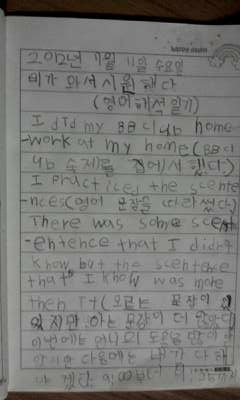 happy dream
2012년 7월 11일 수요일
비가 와서 시원했다
(영어해석일기)
I did my BB club home
-work at my home (BB cl
ub 숙제를 집에서 했다)
I practiced the scente
-nces(영어 문장을 따라 썼다)
There was some scent
-entence that I didn't
know but the scentence
that I know was more
then It (모르는 문장이
있지만 아는 문장이 더 많았다)
이번에는 언니의 도움을 받아
하지만 다음에는 내가 다 하